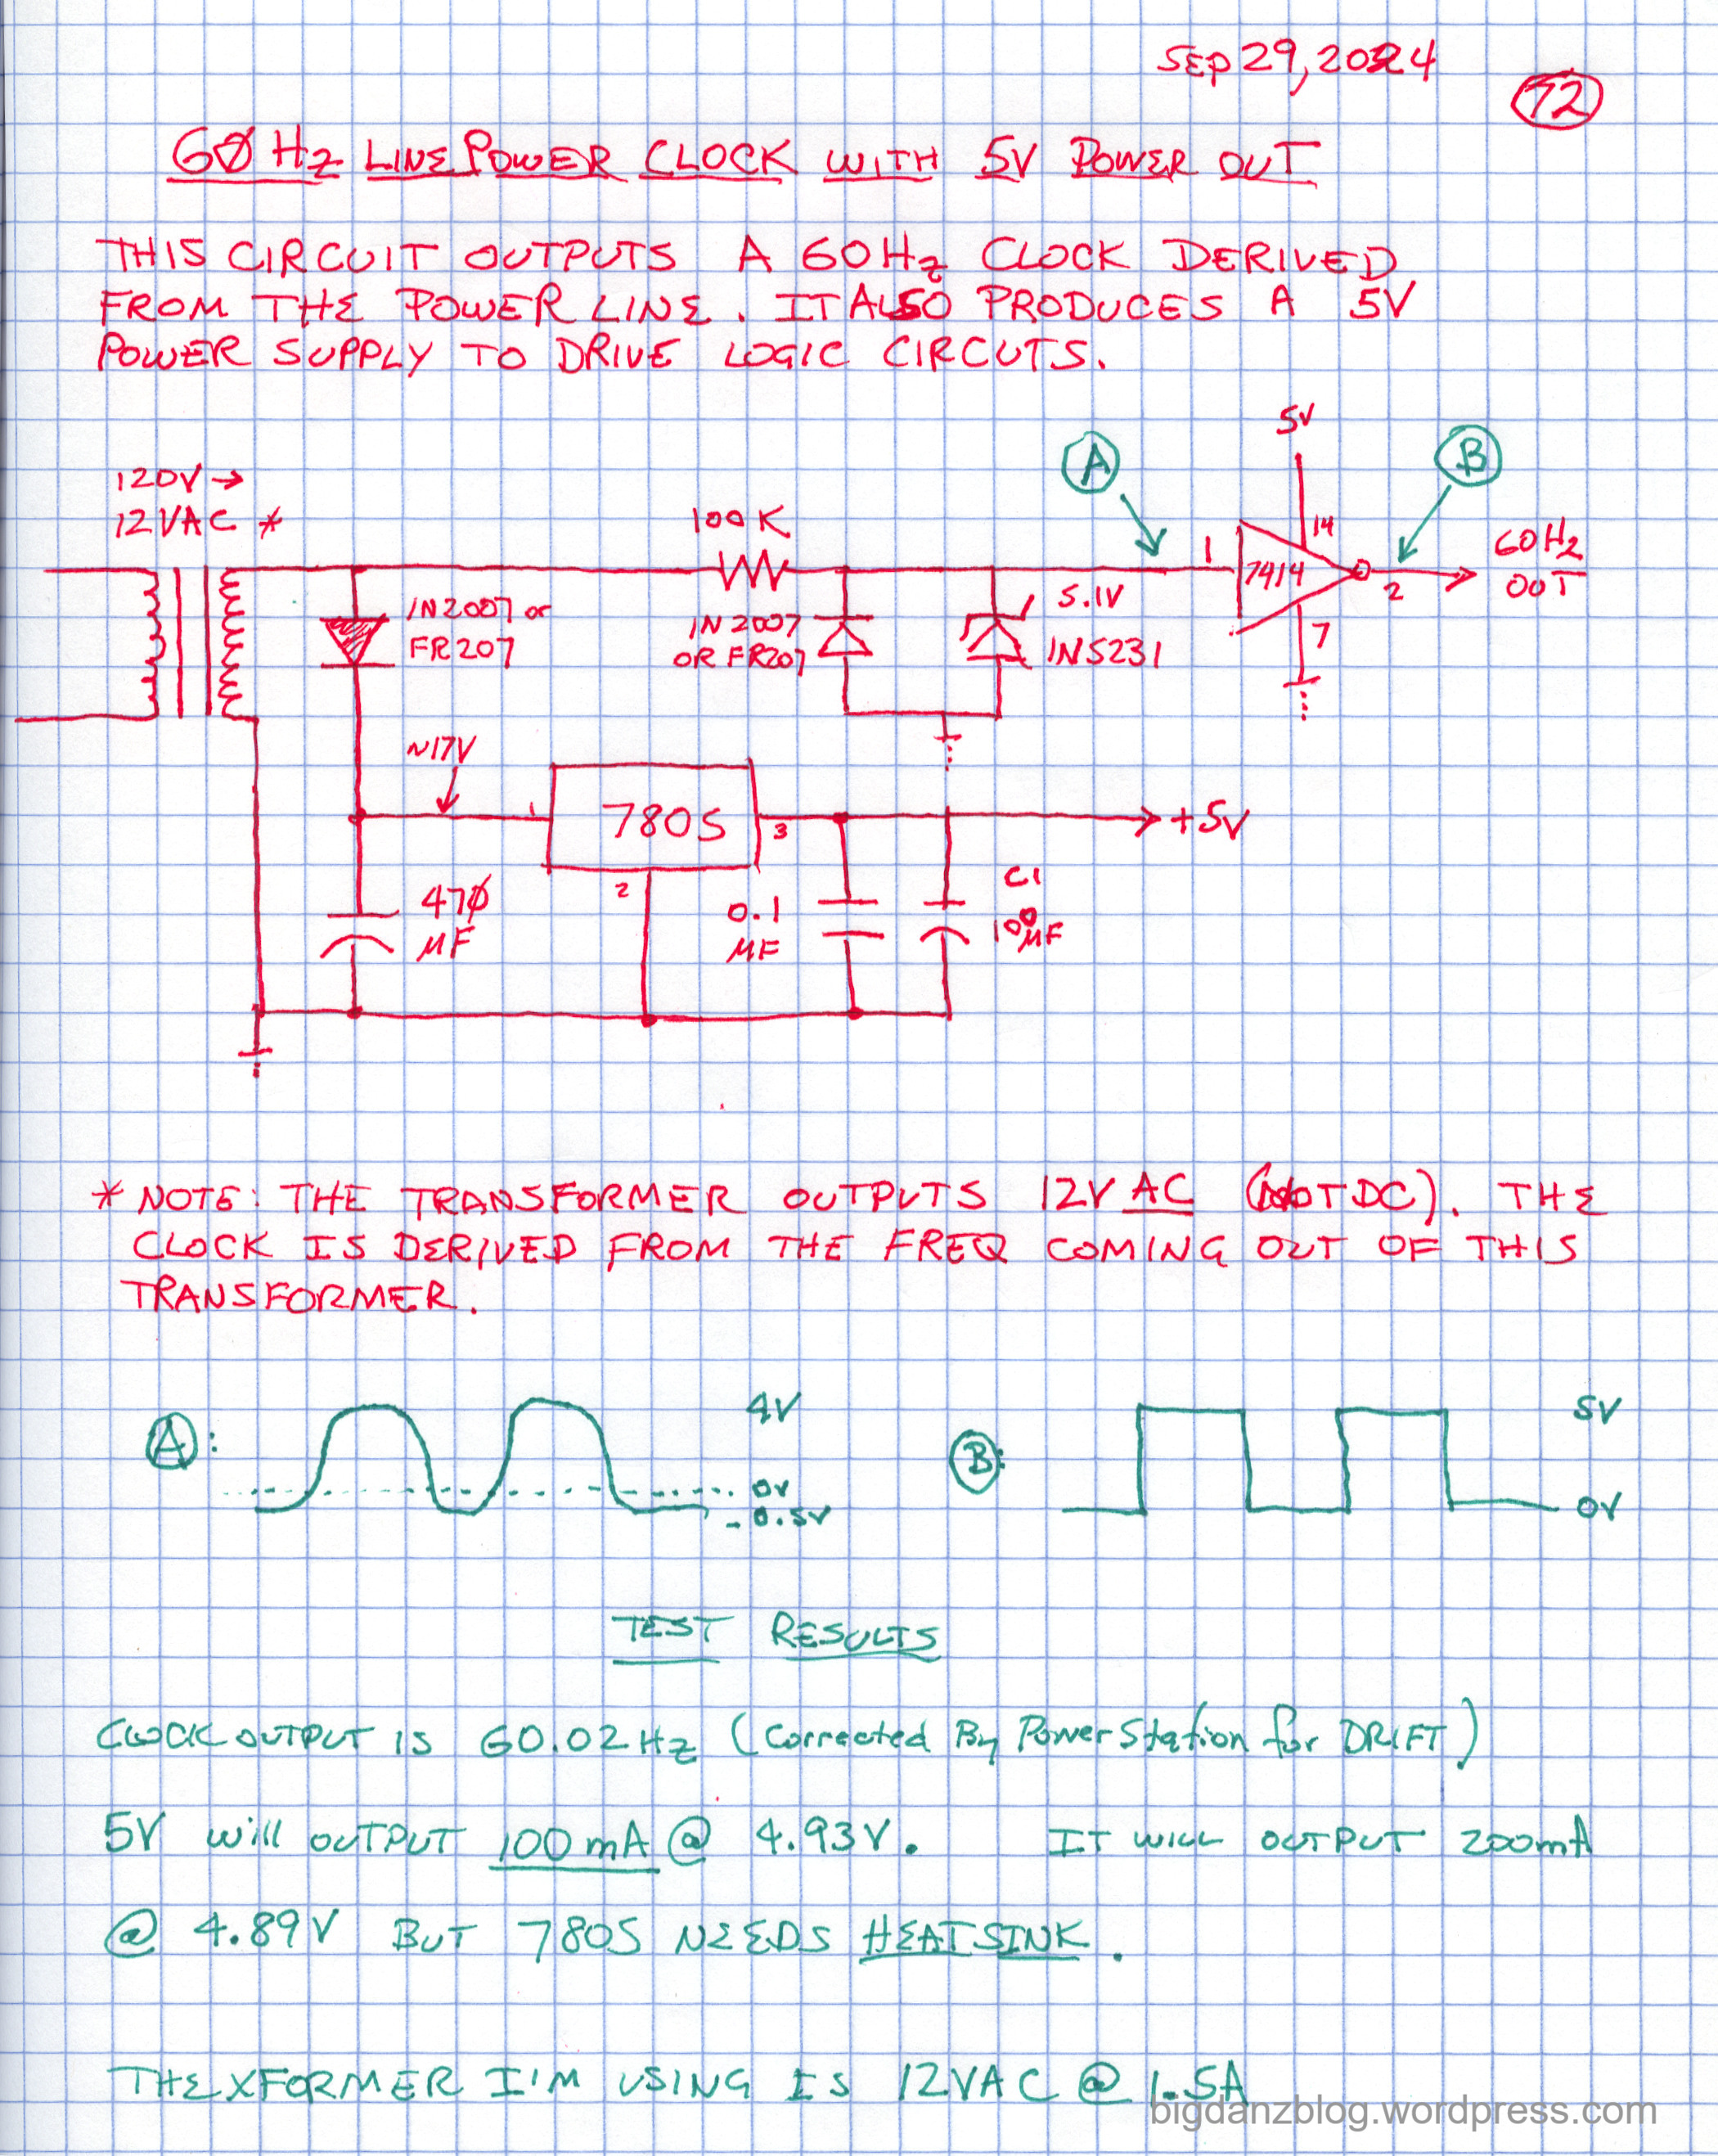 SEP 29, 2024
72
60 Hz LINE POWER CLOCK WITH 5V POWER OUT
THIS CIRCUIT OUTPUTS A 60Hz CLOCK DERIVED
FROM THE POWER LINE. IT ALSO PRODUCES A 5V
POWER SUPPLY TO DRIVE LOGIC CIRCUTS.
5V
A
B
120V →
12VAC *
100K
14
1
7414
2
60Hz
OUT
7
1N2007 or
FR207
1N2007
OR FR207
5.1V
1N5231
~17V
1
7805
3
2
+5V
470
µF
0.1
µF
C1
100
µF
* NOTE: THE TRANSFORMER OUTPUTS 12V AC (NOT DC). THE
CLOCK IS DERIVED FROM THE FREQ COMING OUT OF THIS
TRANSFORMER.
A:
4V
0V
-0.5V
B:
5V
0V
TEST RESULTS
CLOCK OUTPUT IS 60.02Hz (Corrected By Power Station for DRIFT)
5V will OUTPUT 100mA @ 4.93V. IT WILL OUTPUT 200mA
@ 4.89V BUT 7805 NEEDS HEATSINK.
THE XFORMER I'M USING IS 12VAC @ 1.5A
bigdanzblog.wordpress.com